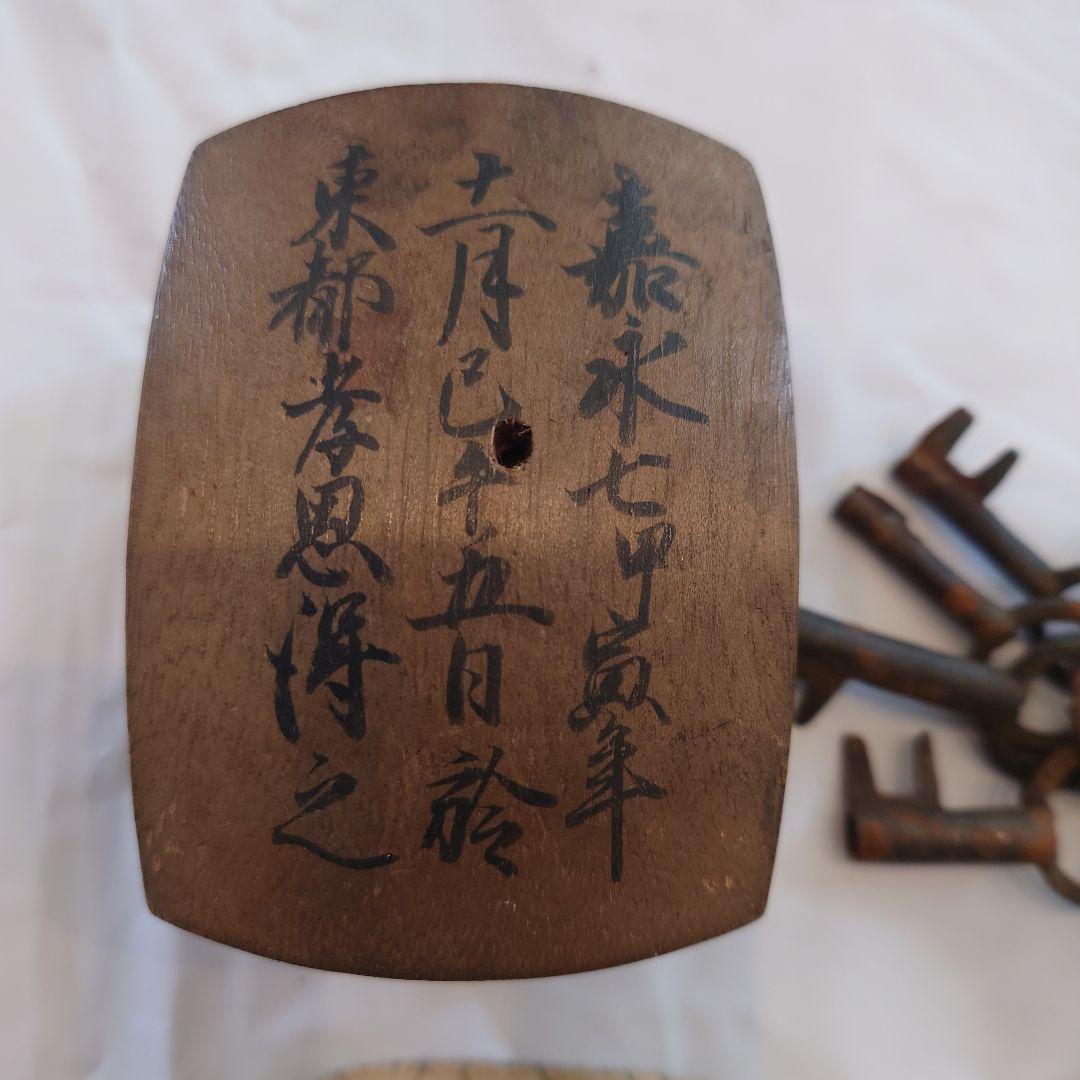 嘉永七甲寅年
十一月己午五日於
東都孝思得之